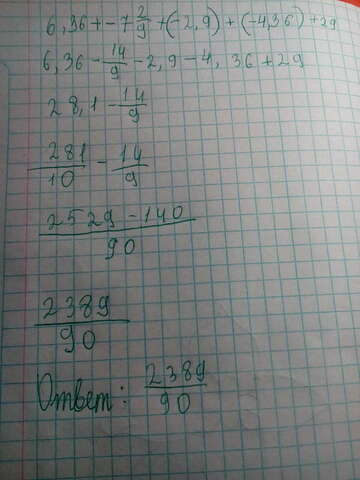 6,36+-7 2/9 +(-2,9)+(-4,36)+29
6,36-14/9-2,9-4,36+29
28,1-14/9
281/10 - 14/9
2529-140/90
2389/90
Ответ: 2389/90